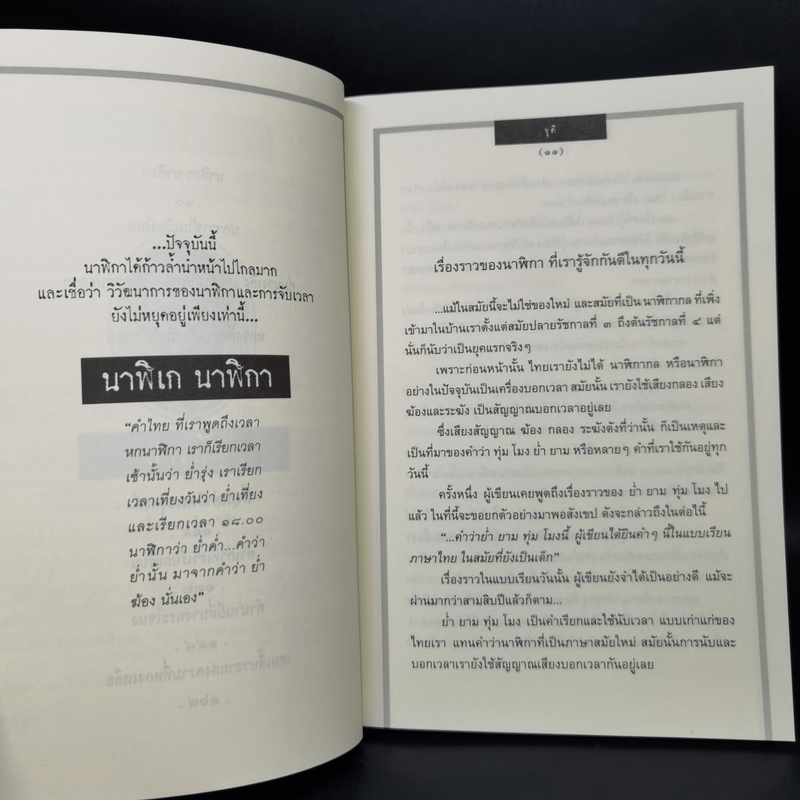 ...ปัจจุบันนี้
นาฬิกาได้ก้าวล้ำนำหน้าไปไกลมาก
และเชื่อว่า วิวัฒนาการของนาฬิกาและการจับเวลา
ยังไม่หยุดอยู่เพียงเท่านี้...
นาฬิเก นาฬิกา
“คำไทย ที่เราพูดถึงเวลา
หกนาฬิกา เราก็เรียกเวลา
เช้านั้นว่า ย่ำรุ่ง เราเรียก
เวลาเที่ยงวันว่า ย่ำเที่ยง
และเรียกเวลา ๑๘.๐๐
นาฬิกาว่า ย่ำค่ำ...คำว่า
ย่ำนั้น มาจากคำว่า ย่ำ
ฆ้อง นั่นเอง”
ชุติ
(๑๑)
เรื่องราวของนาฬิกา ที่เรารู้จักกันดีในทุกวันนี้
...แม้ในสมัยนี้จะไม่ใช่ของใหม่ และสมัยที่เป็น นาฬิกากล ที่เพิ่ง
เข้ามาในบ้านเราตั้งแต่สมัยปลายรัชกาลที่ ๓ ถึงต้นรัชกาลที่ ๔ แต่
นั่นก็นับว่าเป็นยุคแรกจริงๆ
เพราะก่อนหน้านั้น ไทยเรายังไม่ได้ นาฬิกากล หรือนาฬิกา
อย่างในปัจจุบันเป็นเครื่องบอกเวลา สมัยนั้น เรายังใช้เสียงกลอง เสียง
ฆ้องและระฆัง เป็นสัญญาณบอกเวลาอยู่เลย
ซึ่งเสียงสัญญาณ ฆ้อง กลอง ระฆังดังที่ว่านั้น ก็เป็นเหตุและ
เป็นที่มาของคำว่า ทุ่ม โมง ย่ำ ยาม หรือหลายๆ คำที่เราใช้กันอยู่ทุก
วันนี้
ครั้งหนึ่ง ผู้เขียนเคยพูดถึงเรื่องราวของ ย่ำ ยาม ทุ่ม โมง ไป
แล้ว ในที่นี้จะขอยกตัวอย่างมาพอสังเขป ดังจะกล่าวถึงในต่อไปนี้
“...คำว่าย่ำ ยาม ทุ่ม โมงนี้ ผู้เขียนได้ยินคำๆ นี้ในแบบเรียน
ภาษาไทย ในสมัยที่ยังเป็นเด็ก”
เรื่องราวในแบบเรียนวันนั้น ผู้เขียนยังจำได้เป็นอย่างดี แม้จะ
ผ่านมากว่าสามสิบปีแล้วก็ตาม...
ย่ำ ยาม ทุ่ม โมง เป็นคำเรียกและใช้นับเวลา แบบเก่าแก่ของ
ไทยเรา แทนคำว่านาฬิกาที่เป็นภาษาสมัยใหม่ สมัยนั้นการนับและ
บอกเวลาเรายังใช้สัญญาณเสียงบอกเวลากันอยู่เลย